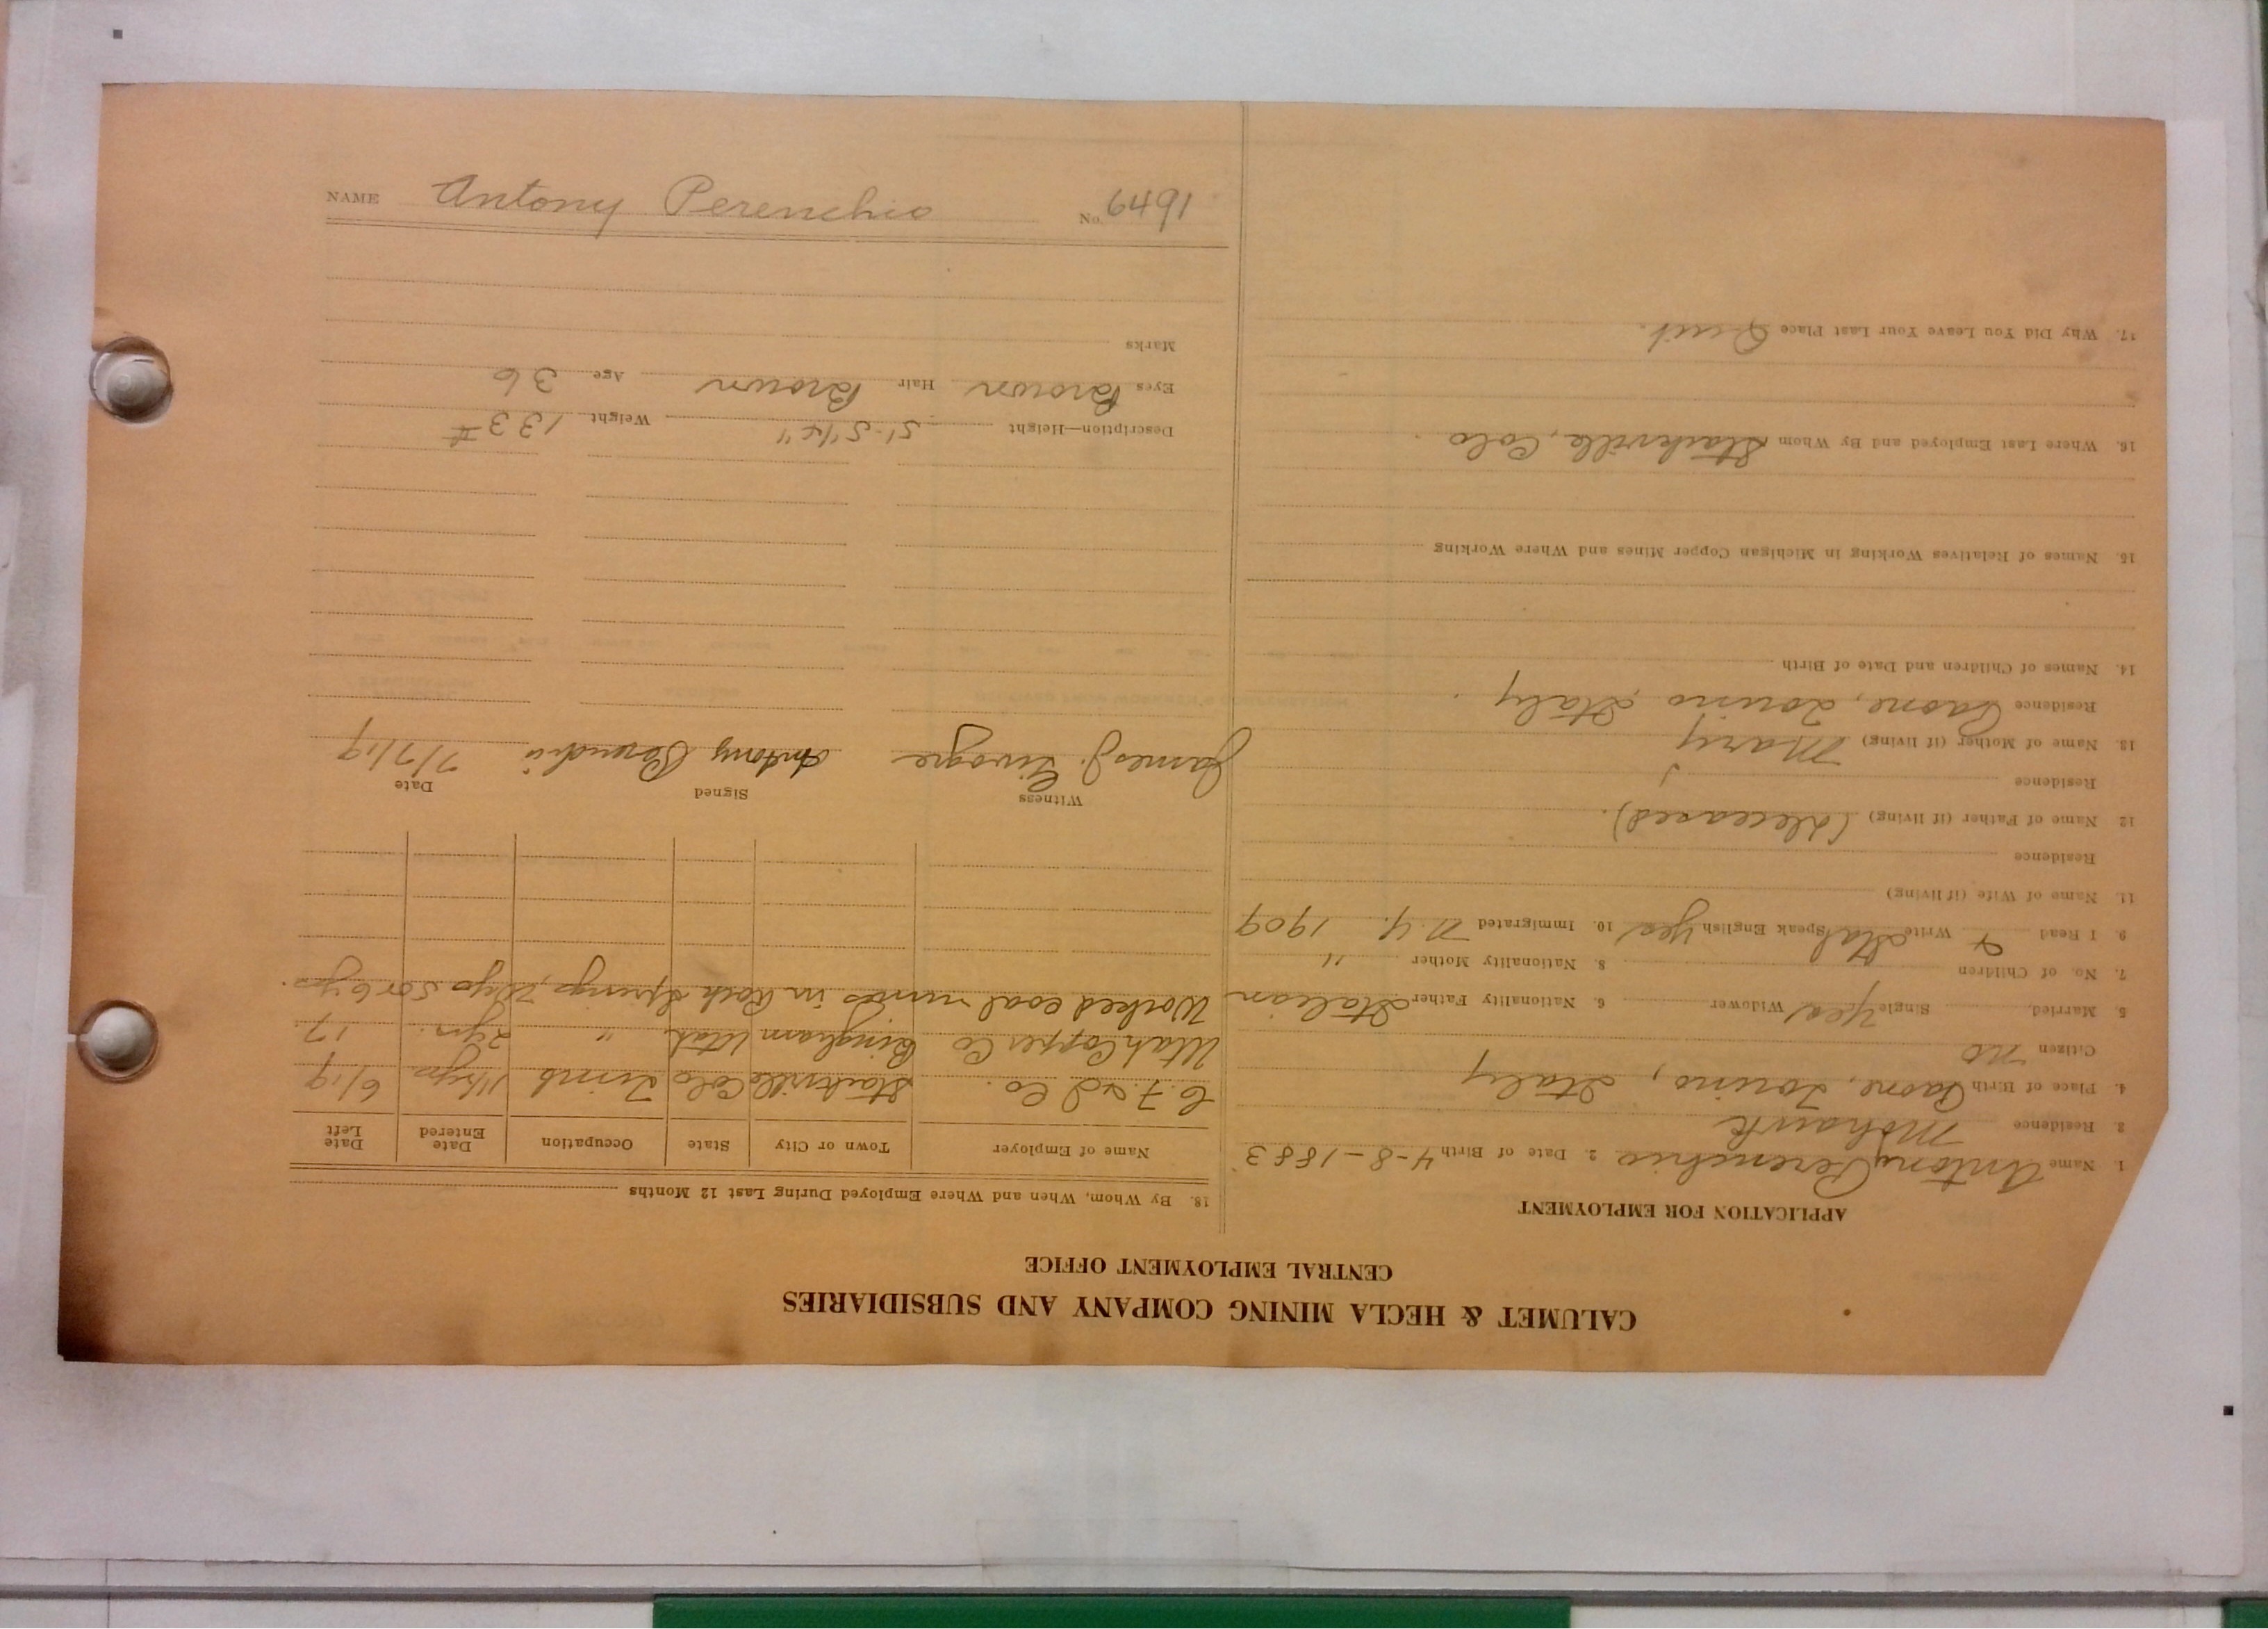 CALUMET & HECLA MINING COMPANY AND SUBSIDIARIES
CENTRAL EMPLOYMENT OFFICE
APPLICATION FOR EMPLOYMENT
1. Name Antony Perenchio 2. Date of Birth 4-8-1883
3. Residence Mohawk
4. Place of Birth Paone, Torino, Italy
Citizen no
5. Married Single yes Widower 6. Nationality Father Italian
7. No. of Children 8. Nationality Mother "
9. I Read & Write Ital Speak English yes 10. Immigrated N.Y. 1909
11. Name of Wife (if living)
Residence
12. Name of Father (if living) (deceased).
Residence
13. Name of Mother (if living) Mary
Residence Paone, Torino Italy.
14. Names of Children and Date of Birth
15. Names of Relatives Working in Michigan Copper Mines and Where Working
16. Where Last Employed and By Whom Starkville, Colo.
17. Why Did You Leave Your Last Place Quit.
18. By Whom, When and Where Employed During Last 12 Months
Name of Employer Town or City State Occupation Date Entered Date Left
C. F. and I Co. Starkville Colo Timb 6/19
Utah Copper Co Bingham Utah " 2 yrs. 17.
Worked coal mines in Rock Springs, Wyo 5 or 6 yrs.
Witness Signed Date
James J. Antony Perenchio 7/7/19
Description—Height 5'-5 1/4" Weight 133 #
Eyes Brown Hair Brown Age 36
Marks
NAME Antony Perenchio No. 6491